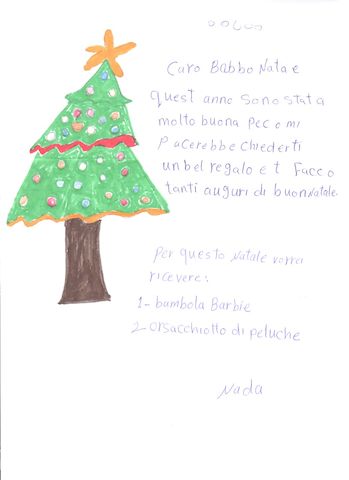 Caro Babbo Nata e
quest anno sono stat a
molto buona pec o mi
piacerebbe chiederti
un bel regalo e t faccio
tanti auguri di buon Natale.
per questo Natale vorrei
ricevere:
1- bambola Barbie
2 orsacchiotto di peluche
Nada